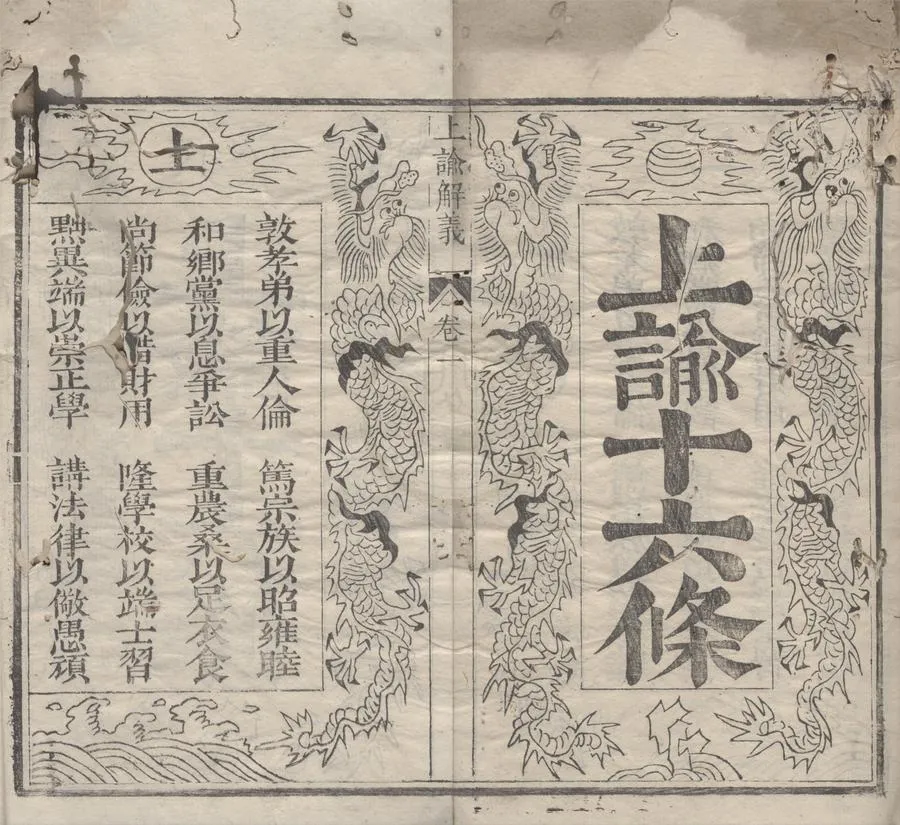 上諭十六條
上諭解義
卷一
敦孝弟以重人倫　篤宗族以昭雍睦
和鄉黨以息爭訟　重農桑以足衣食
尚節儉以惜財用　隆學校以端士習
黜異端以崇正學　講法律以儆愚頑